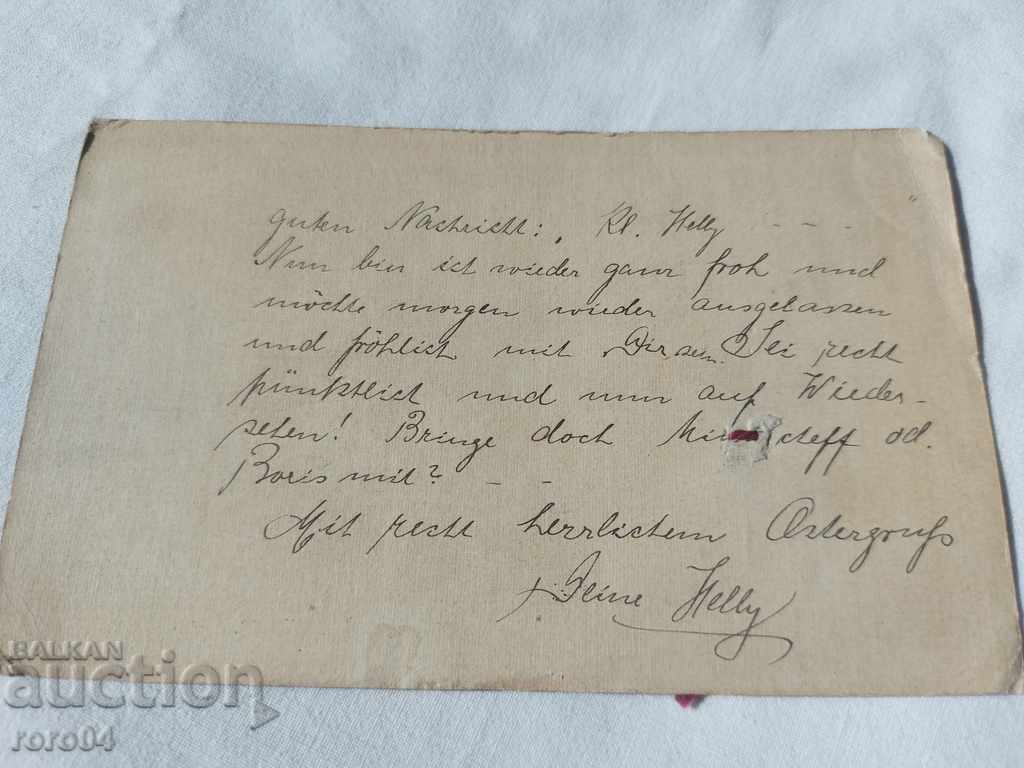 guten Nachricht: „ Kl. Helly - - - "
Nun bin ich wieder ganz froh und
möchte morgen wieder ausgelassen
und fröhlich mit Dir sein. Sei recht
pünktlich und nun auf Wieder-
sehen! Bringe doch cheff od.
Boris mit? - -
Mit recht herzlichem Ostergruß
Deine Helly
BALKAN
auction
roro04